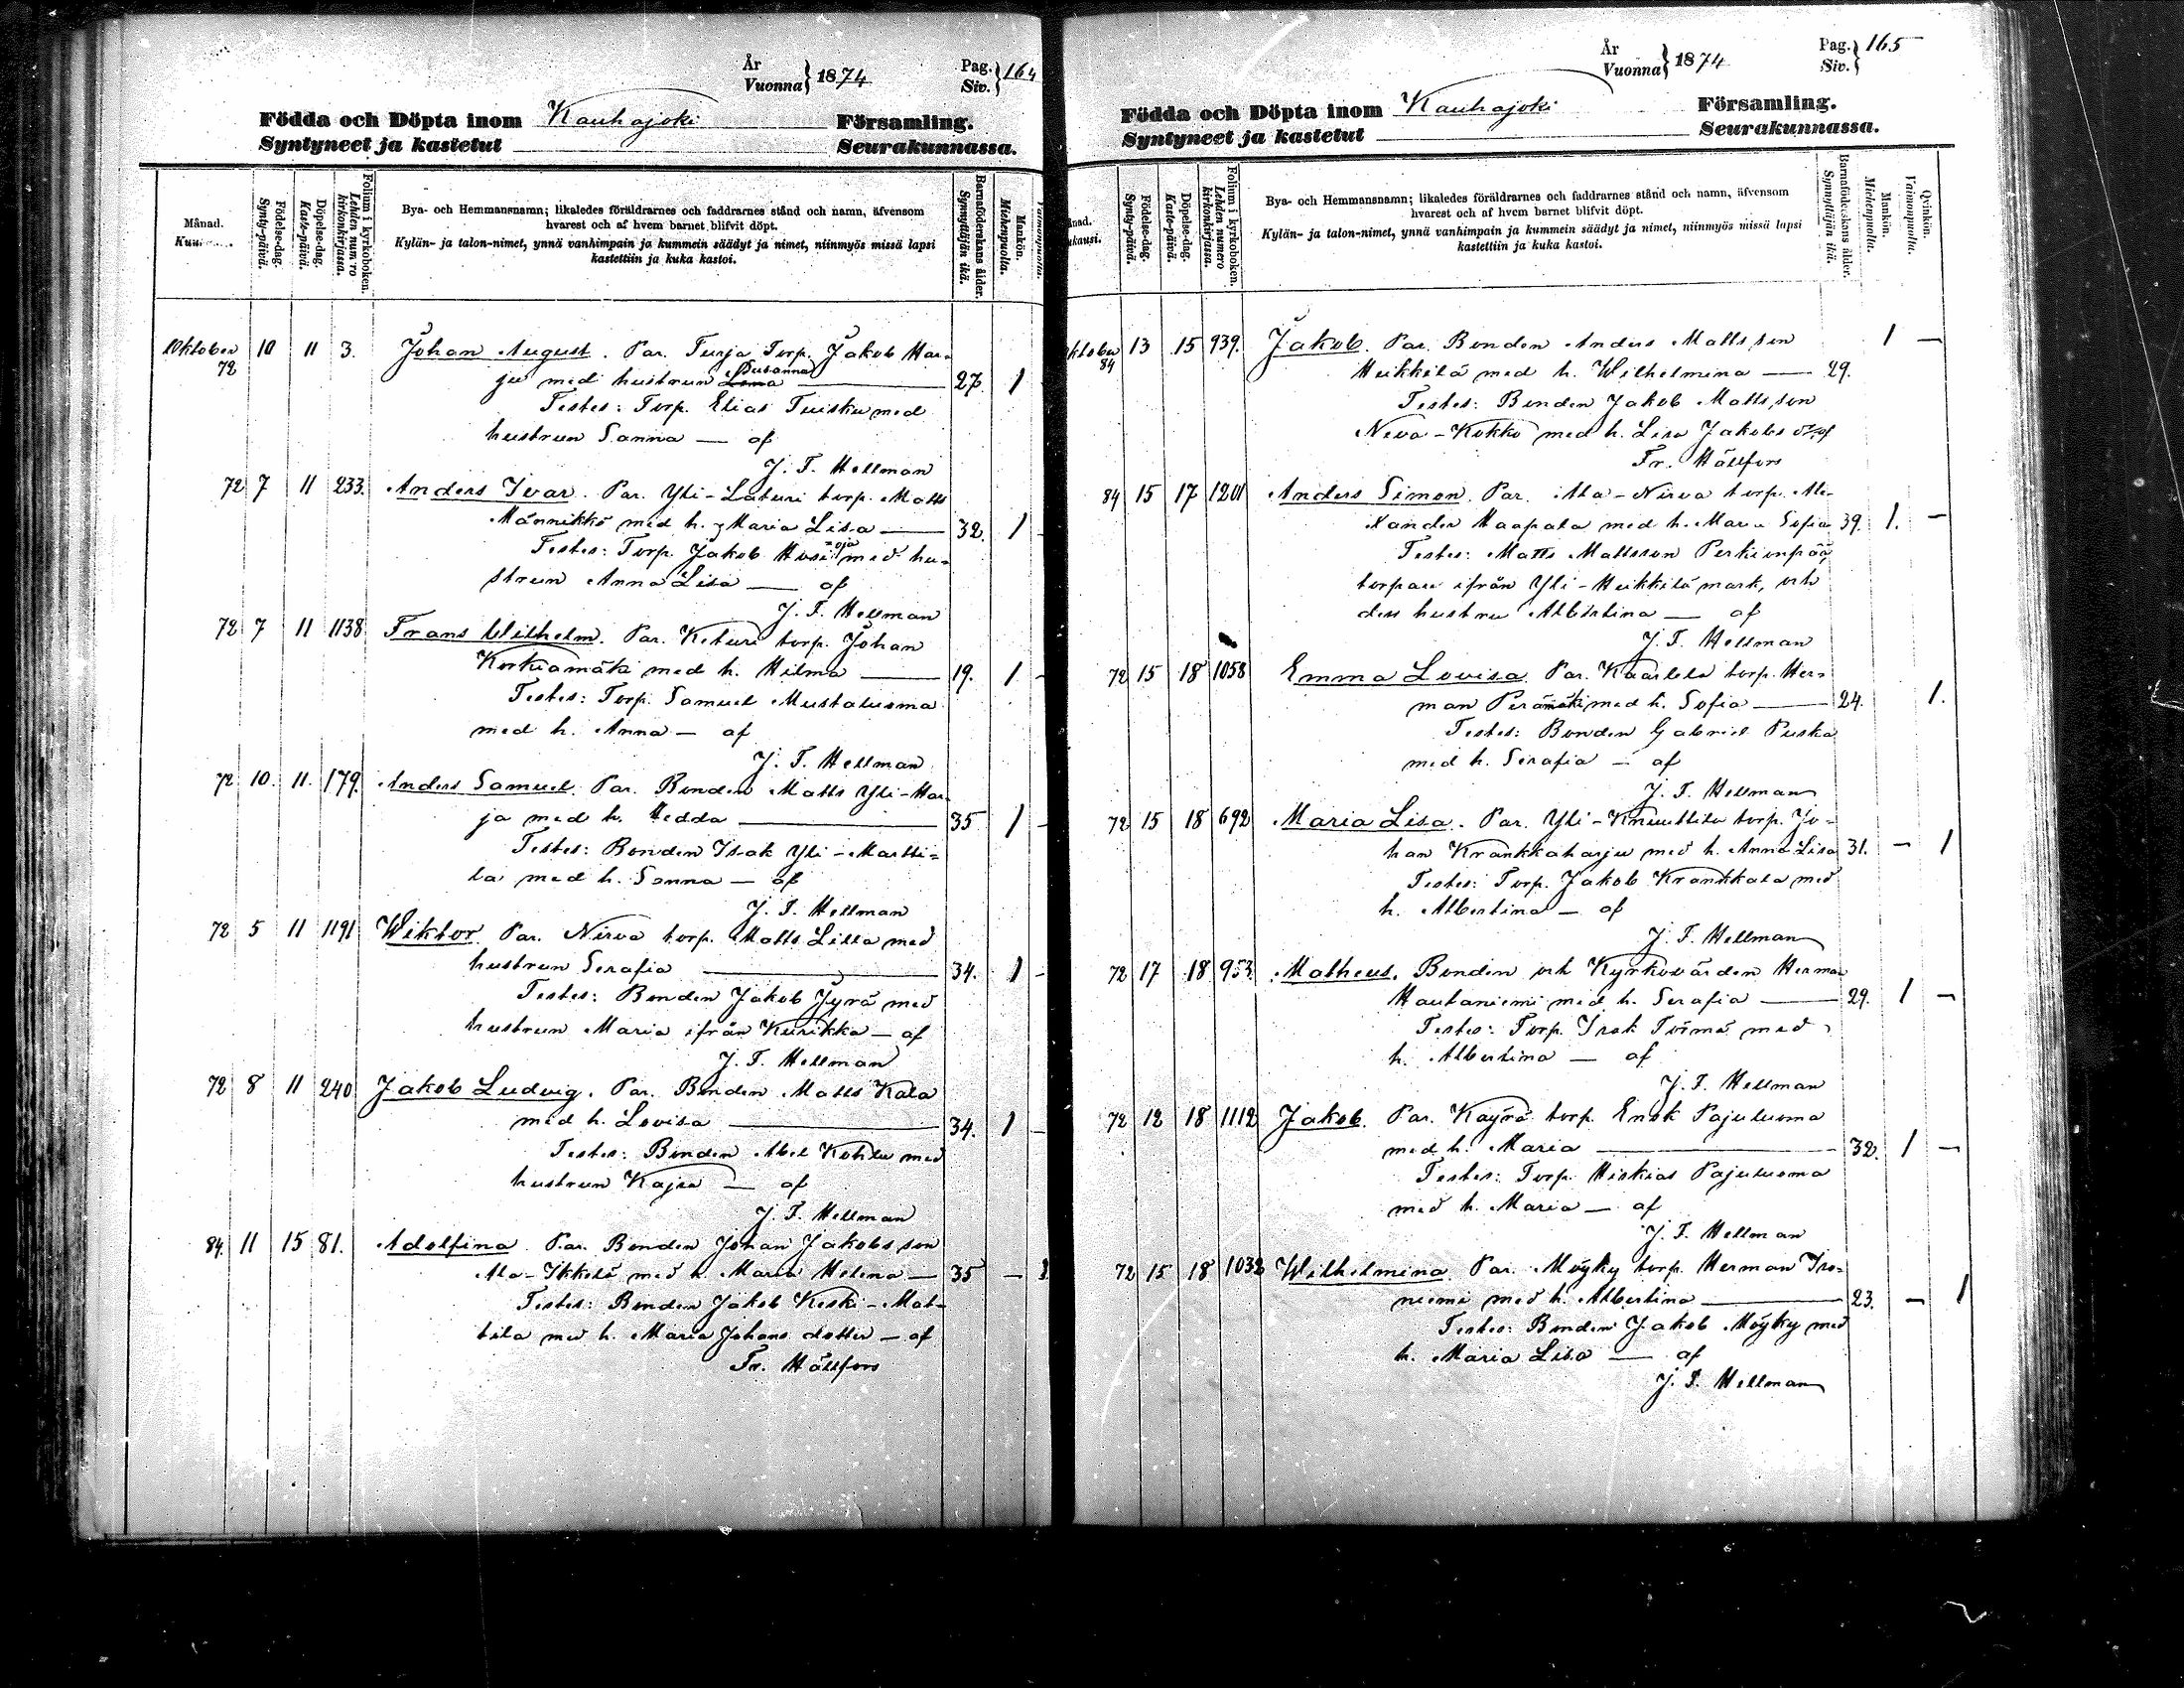 År
Vuonna } 1874
Pag.
Siv. } 164
Födda och Döpta inom Kauhajoki Församling.
Syntyneet ja kastetut Seurakunnassa.
Månad.
Födelse-dag.
Synty-päivä.
Döpelse-dag.
Kaste-päivä.
Folium i kyrkoboken.
Lehden num ro kirkonkirjassa.
Bya- och Hemmansnamn; likaledes föräldrarnes och faddrarnes stånd och namn, äfvensom
hvarest och af hvem barnet blifvit döpt.
Kylän- ja talon-nimet, ynnä vanhimpain ja kummein säädyt ja nimet, niinmyös missä lapsi
kastettiin ja kuka kastoi.
Barnaföderskans ålder.
Synnyttäjän ikä.
Mankön.
Miehenpuolta.
Oktober 10 11 3. Johan August. Par. Turja Torp. Jakob Har-
72
Susanna
ju med hustrun Lena — 27. 1
Testes: Torp. Elias Tuisku med
hustrun Sanna — af
J. T. Hellman
72 7 11 233. Anders Ivar. Par. Yli-Laturi torp. Matts
Männikkö med h. Maria Lisa — 32. 1
Testes: Torp. Jakob Husi=oja med hu-
strun Anna Lisa — af
J. T. Hellman
72 7 11 1138 Frans Wilhelm. Par. Keturi torp. Johan
Korkiamäki med h. Hilma — 19. 1
Testes: Torp. Samuel Mustaluoma
med h. Anna — af
J. T. Hellman
72 10. 11. 179. Anders Samuel. Par. Bonden Matts Yli-Har-
ja med h. Hedda — 35 1
Testes: Bonden Isak Yli-Martti=
la med h. Sanna — af
J. T. Hellman
72 5 11 1191 Wiktor. Par. Nirva torp. Matts Lilla med
hustrun Serafia — 34. 1
Testes: Bonden Jakob Jyrä med
hustrun Maria ifrån Kurikka — af
J. T. Hellman
72 8 11 240 Jakob Ludvig. Par. Bonden Matts Kala
med h. Lovisa — 34. 1
Testes: Bonden Abel Kohlu med
hustrun Kajsa — af
J. T. Hellman
84. 11 15 81. Adolfina. Par. Bonden Johan Jakobsson
Ala-Ikkelä med h. Maria Helena — 35 — 1
Testes: Bonden Jakob Keski-Mat-
tila med h. Maria Johans dotter — af
Fr. Hällfors
År
Vuonna } 1874
Pag.
Siv. } 165
Födda och Döpta inom Kauhajoki Församling.
Syntyneet ja kastetut Seurakunnassa.
Födelse-dag.
Synty-päivä.
Döpelse-dag.
Kaste-päivä.
Folium i kyrkoboken.
Lehden numero kirkonkirjassa.
Bya- och Hemmansnamn; likaledes föräldrarnes och faddrarnes stånd och namn, äfvensom
hvarest och af hvem barnet blifvit döpt.
Kylän- ja talon-nimet, ynnä vanhimpain ja kummein säädyt ja nimet, niinmyös missä lapsi
kastettiin ja kuka kastoi.
Barnaföderskans ålder.
Synnyttäjän ikä.
Mankön.
Miehenpuolta.
Qvinkön.
Vaimonpuolta.
ktober 13 15 939. Jakob. Par. Bonden Anders Mattsson 1 —
84
Heikkilä med h. Wilhelmina — 29.
Testes: Bonden Jakob Mattsson
Neva-Kokko med h. Lisa Jakobs dr. af
Fr. Hällfors
84 15 17 1201 Anders Simon. Par. Ala-Nirva torp. Ale-
xander Haapala med h. Maria Sofia 39. 1. —
Testes: Matts Mattsson Perkiönpää,
torpare ifrån Yli-Heikkilä mark, och
dess hustru Albertina — af
J. T. Hellman
72 15 18 1058 Emma Lovisa. Par. Kaarlela torp. Her=
man Perämäki med h. Sofia — 24. 1.
Testes: Bonden Gabriel Puska
med h. Serafia — af
J. T. Hellman
72 15 18 692 Maria Lisa. Par. Yli-Knuuttila torp. Jo-
han Krankkaharju med h. Anna Lisa 31. — 1
Testes: Torp. Jakob Krankkala med
h. Albertina — af
J. T. Hellman
72 17 18 953. Matheus. Bonden och Kyrkovärden Herman
Hautaniemi med h. Serafia — 29. 1 —
Testes: Torp. Isak Törmä med
h. Albertina — af
J. T. Hellman
72 12 18 1112 Jakob. Par. Käyrä torp. Enok Pajuluoma
med h. Maria — 32. 1 —
Testes: Torp. Hiskias Pajuluoma
med h. Maria — af
J. T. Hellman
72 15 18 1032 Wilhelmina. Par. Möyky torp. Herman Iso-
niemi med h. Albertina — 23. — 1
Testes: Bonden Jakob Möyky med
h. Maria Lisa — af
J. T. Hellman